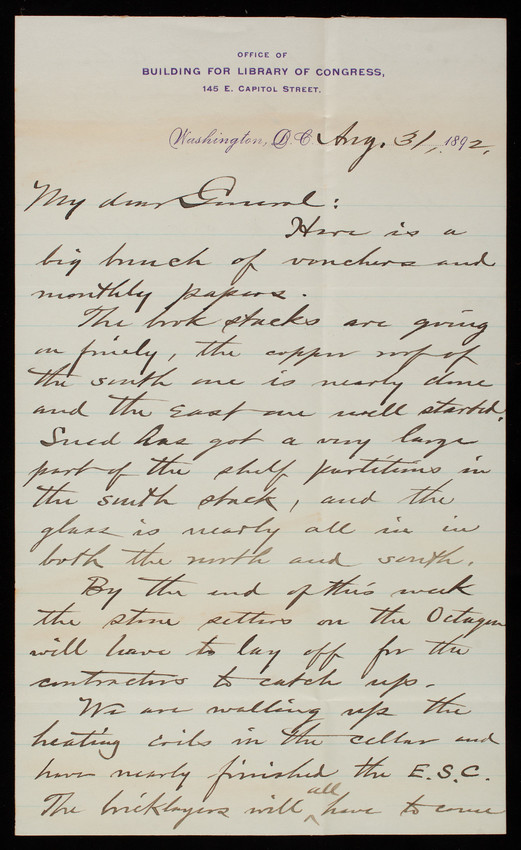 OFFICE OF
BUILDING FOR LIBRARY OF CONGRESS,
145 E. CAPITOL STREET.
Washington, D.C. Aug. 31, 1892.
My dear General:
Here is a
big bunch of vouchers and
monthly papers.
The book stacks are going
on finely, the copper roof of
the south one is nearly done
and the East one well started.
Snead has got a very large
part of the shelf partitions in
the south stack, and the
glass is nearly all in in
both the north and south.
By the end of this week
the stone setters on the Octagon
will have to lay off for the
contractors to catch up.
We are walling up the
heating coils in the cellar and
have nearly finished the E.S.C.
The bricklayers will all have to come